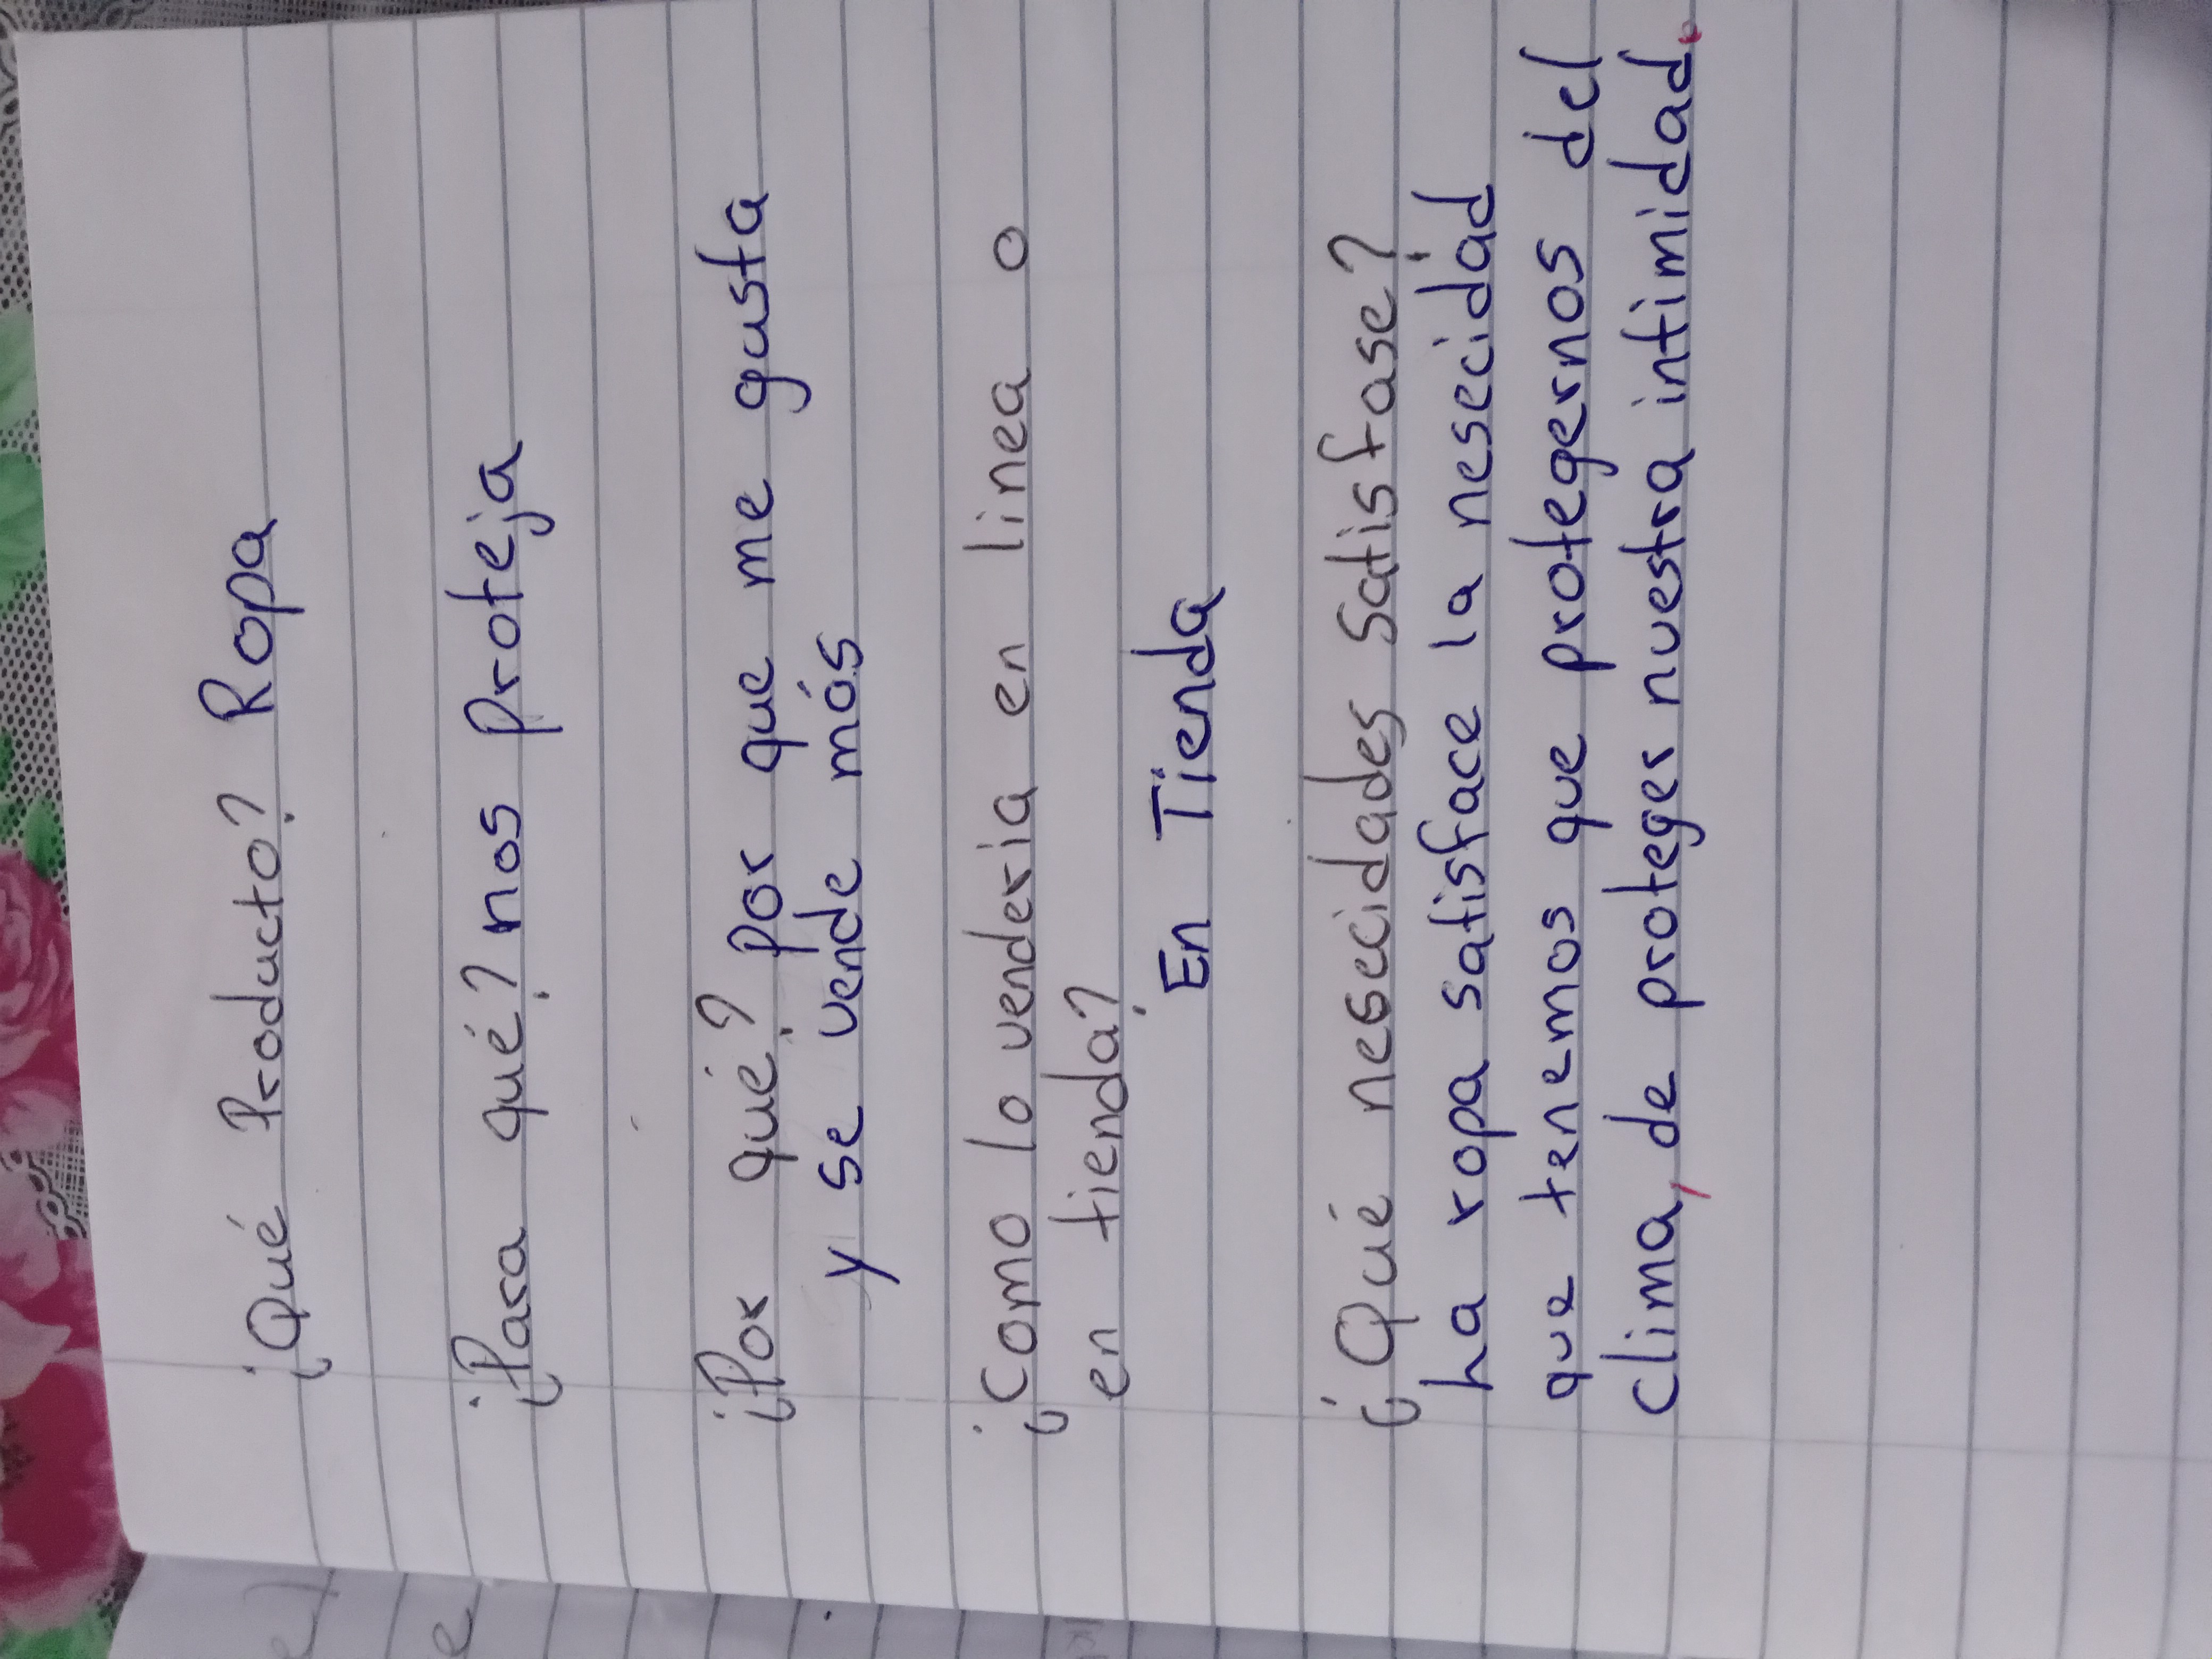 ¿Qué Producto? Ropa
¿Para qué? nos proteja
¿Por qué? Por que me gusta
y se vende más
¿Como lo venderia en linea o
en tienda?
En Tienda
¿Qué nesecidades satisfase?
ha ropa satisface la nesecidad
que tenemos que protegernos del
clima, de proteger nuestra intimidad.